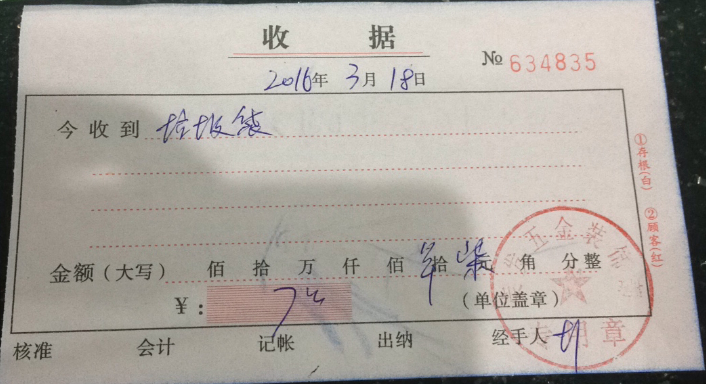 收据
№ 634835
2016年3月18日
今收到 垃圾袋
金额(大写) 佰 拾 万 仟 佰 拾 柒 角 分整
¥:
(单位盖章)
核准 会计 记帐 出纳 经手人
①存根(白) ②顾客(红)
五金装饰
专用章